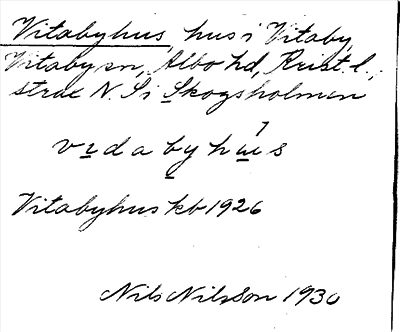 Vitabyhus, hus i Vitaby,
Vitaby sn, Albo hd, Krist. l.,
strax N. S i Skogsholmen
vɪdabyhɯ́s
Vitabyhus kb 1926
Nils Nilsson 1930